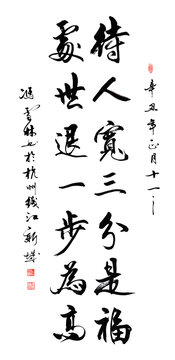 辛丑年正月十一
待人寬三分是福
處世退一步為高
於杭州錢江新城